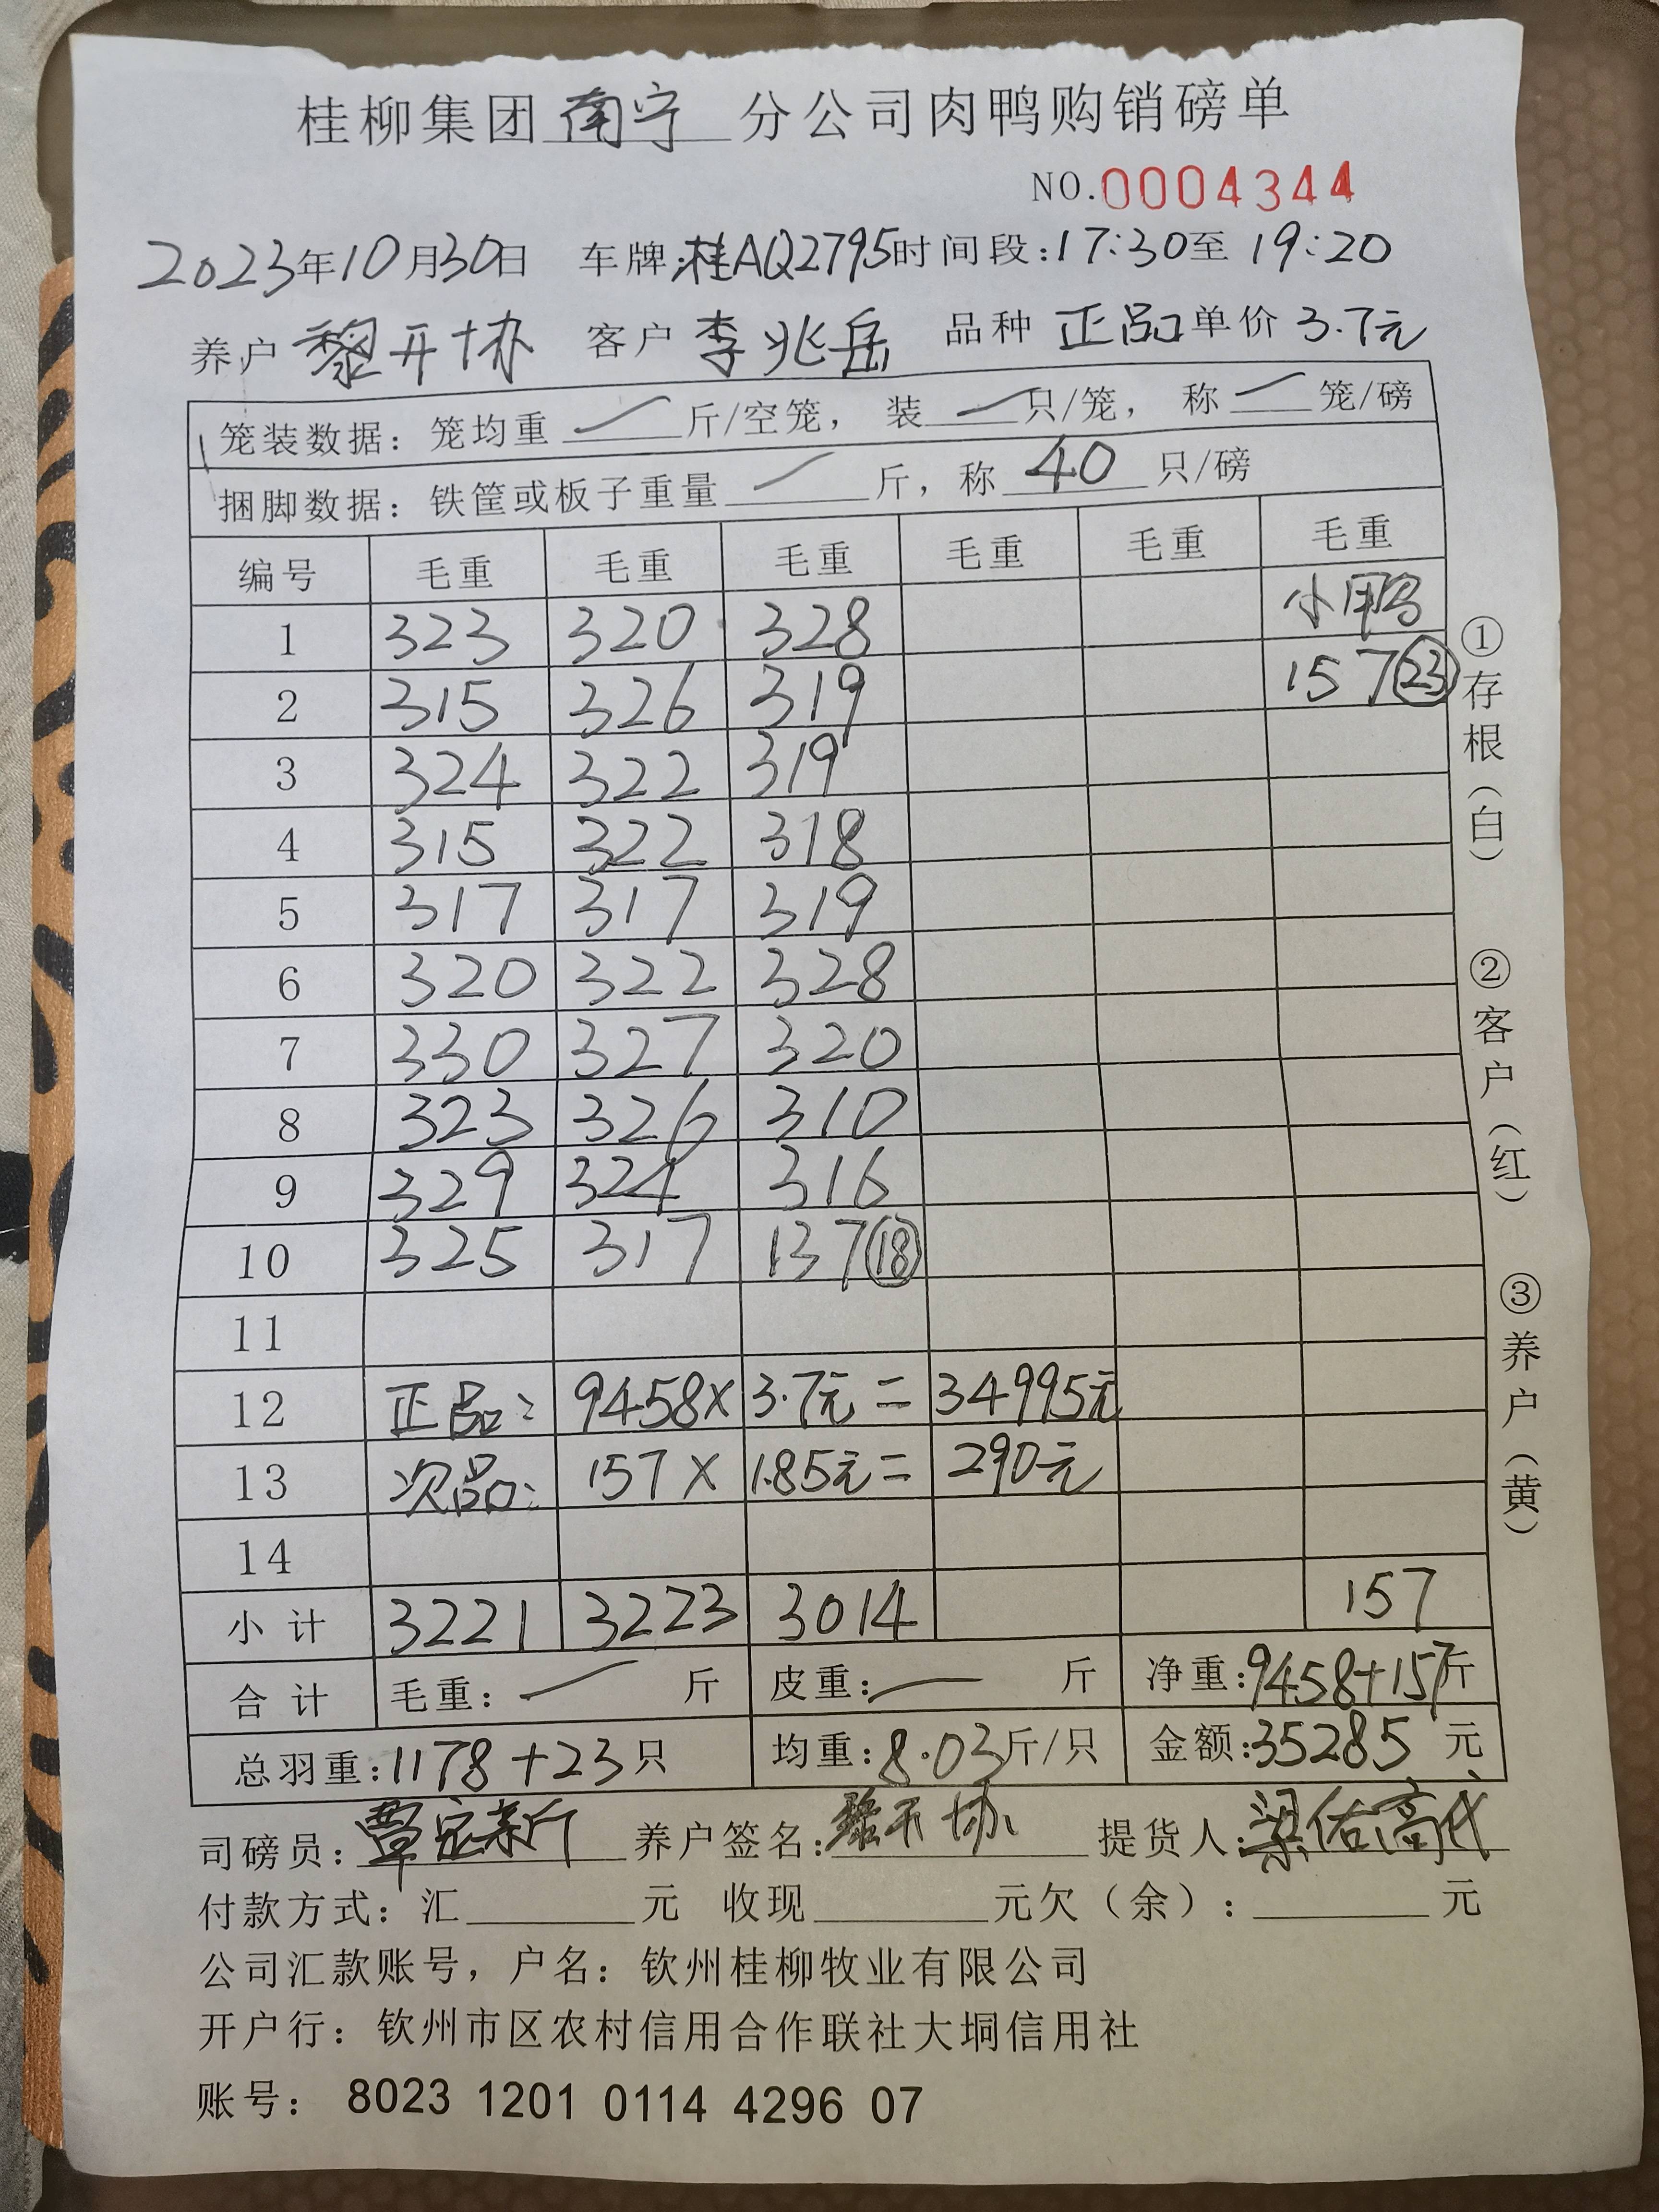 桂柳集团南宁分公司肉鸭购销磅单
NO.0004344
2023年10月30日 车牌:桂AQ2795时间段:17:30至19:20
养户 黎开协 客户 李兆岳 品种 正品 单价 3.7元
笼装数据：笼均重 — 斤/空笼， 装 — 只/笼， 称 — 笼/磅
捆脚数据：铁筐或板子重量 — 斤，称 40 只/磅
编号 毛重 毛重 毛重 毛重 毛重 毛重
1 323 320 328 小鸭
2 315 326 319 157 23
3 324 322 319
4 315 322 318
5 317 317 319
6 320 322 328
7 330 327 320
8 323 326 310
9 329 324 316
10 325 317 137 18
11
12 正品: 9458× 3.7元= 34995元
13 次品: 157× 1.85元= 290元
14
小计 3221 3223 3014 157
合计 毛重：— 斤 皮重：— 斤 净重:9458+157斤
总羽重:1178+23只 均重:8.03斤/只 金额:35285元
司磅员: 覃定新 养户签名: 黎开协 提货人: 梁佑高代
付款方式：汇 元 收现 元欠（余）： 元
公司汇款账号，户名：钦州桂柳牧业有限公司
开户行：钦州市区农村信用合作联社大垌信用社
账号： 8023 1201 0114 4296 07
①存根（白） ②客户（红） ③养户（黄）